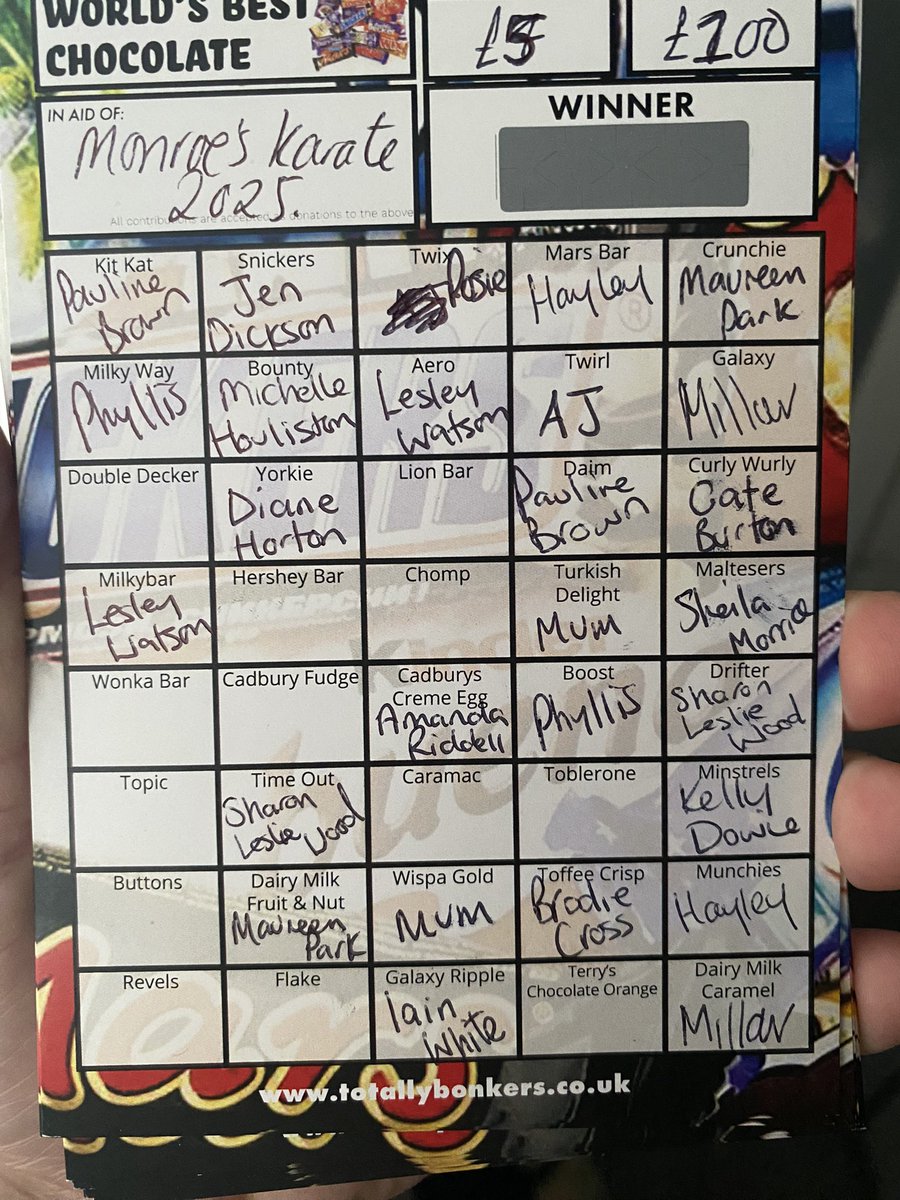 WORLD'S BEST
CHOCOLATE
£5
£100
IN AID OF:
Monroe's Karate
2025.
All contributions are accepted as donations to the above
WINNER
Kit Kat
Pauline
Brown
Snickers
Jen
Dickson
Twix
Rosie
Mars Bar
Hayley
Crunchie
Maureen
Park
Milky Way
Phyllis
Bounty
Michelle
Houliston
Aero
Lesley
Watson
Twirl
AJ
Galaxy
Millar
Double Decker
Yorkie
Diane
Horton
Lion Bar
Daim
Pauline
Brown
Curly Wurly
Cate
Burton
Milkybar
Lesley
Watson
Hershey Bar
Chomp
Turkish
Delight
Mum
Maltesers
Sheila
Wonka Bar
Cadbury Fudge
Cadburys
Creme Egg
Amanda
Riddell
Boost
Phyllis
Drifter
Sharon
Leslie
Wood
Topic
Time Out
Sharon
Leslie Wood
Caramac
Toblerone
Minstrels
Kelly
Dowie
Buttons
Dairy Milk
Fruit & Nut
Maureen
Park
Wispa Gold
Mum
Toffee Crisp
Brodie
Cross
Munchies
Hayley
Revels
Flake
Galaxy Ripple
Iain
White
Terry's
Chocolate Orange
Dairy Milk
Caramel
Millar
www.totallybonkers.co.uk